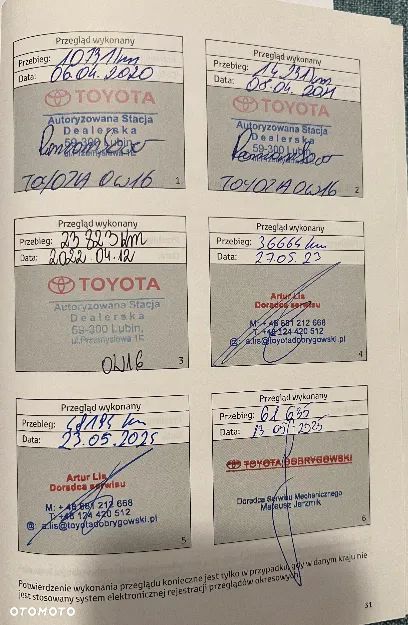 Przegląd wykonany
Przebieg: 10731km
Data: 06.04.2020
TOYOTA
Autoryzowana Stacja
Dealerska
59-300 Lubin,
ul.Przemysłowa 1E
TOYOTA OW16
1
Przegląd wykonany
Przebieg: 14931km
Data: 08.04.2021
TOYOTA
Autoryzowana Stacja
Dealerska
59-300 Lubin,
TOYOTA OW16
2
Przegląd wykonany
Przebieg: 23823km
Data: 2022.04.12
TOYOTA
Autoryzowana Stacja
Dealerska
59-300 Lubin,
ul.Przemysłowa 1E
OW16
3
Przegląd wykonany
Przebieg: 36664 km
Data: 27.05.23
Artur Lis
Doradca serwisu
M: +48 661 212 668
T: +48 124 420 512
@: a.lis@toyotadobrygowski.pl
4
Przegląd wykonany
Przebieg: km
Data: 23.05.
Artur Lis
Doradca serwisu
M: +48 661 212 668
T: +48 124 420 512
@: a.lis@toyotadobrygowski.pl
5
Przegląd wykonany
Przebieg: 61 635
Data: 13 05. 2025
TOYOTA DOBRYGOWSKI
Doradca Serwisu Mechanicznego
Mateusz
6
Potwierdzenie wykonania przeglądu konieczne jest tylko w przypadku, gdy w danym kraju nie
jest stosowany system elektronicznej rejestracji przeglądów okresowych.
31
OTOMOTO